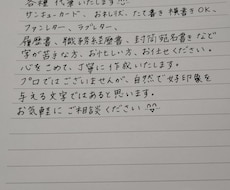 各種 代筆いたします
サンキューカード、お礼状、たて書き 横書きOK、
ファンレター、ラブレター、
履歴書、職務経歴書、封筒宛名書き など
字が苦手な方、お忙しい方、お任せください。
心をこめて、丁寧に作成いたします。
プロではございませんが、自然で好印象を
与える文字ではあると思います。
お気軽にご相談ください